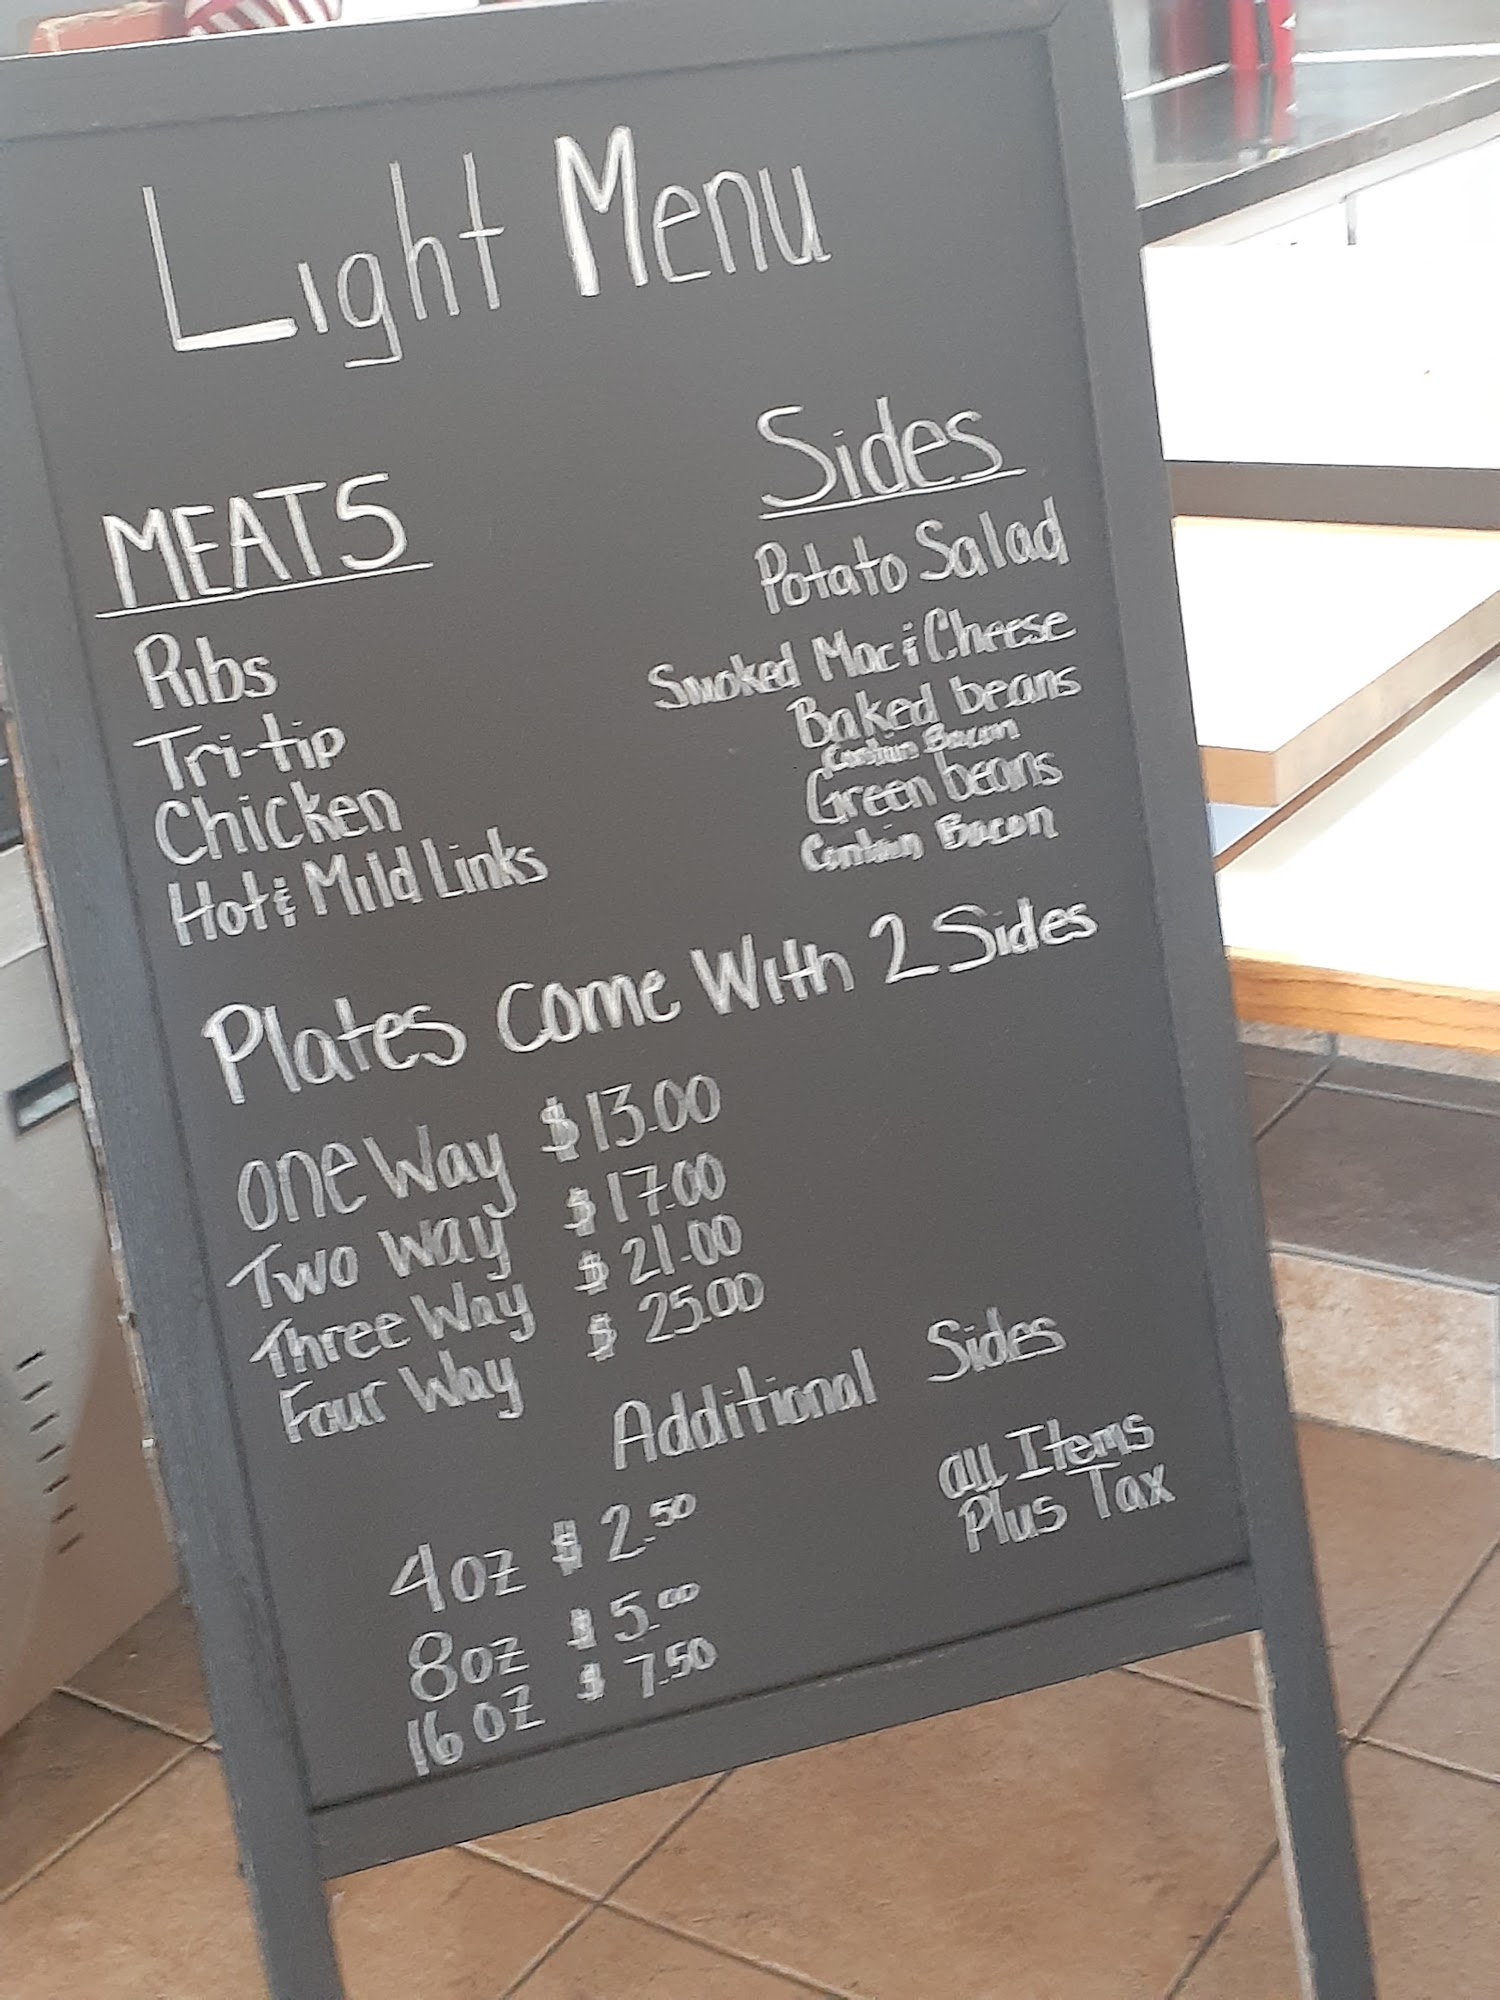 Light Menu
MEATS
Ribs
Tri-tip
Chicken
Hot & Mild Links
Sides
Potato Salad
Smoked Mac & Cheese
Baked beans
Contain Bacon
Green beans
Contain Bacon
Plates Come With 2 Sides
one Way $13.00
Two Way $17.00
Three Way $21.00
Four Way $25.00
Additional Sides
4oz $2.50
8oz $5.00
16oz $7.50
all Items
Plus Tax